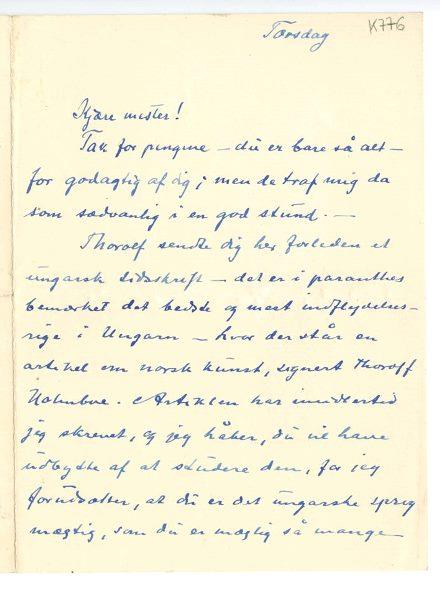 Torsdag
K776
Kjære mester!
Tak for pengene – du er bare så alt–
for godagtig af dig; men de traf mig da
som sædvanlig i en god stund. –
Thorolf sendte dig her forleden et
ungarsk tidsskrift – det er i paranthes
bemærket det bedste og mest indflydelses–
rige i Ungarn – hvor der står en
artikel om norsk kunst, signert Thorolf
Holmboe. Artiklen har imidlertid
jeg skrevet, og jeg håber, du vil have
udbytte af at studere den, for jeg
forudsætter, at du er det ungarske sprog
mægtig, som du er mægtig så mange